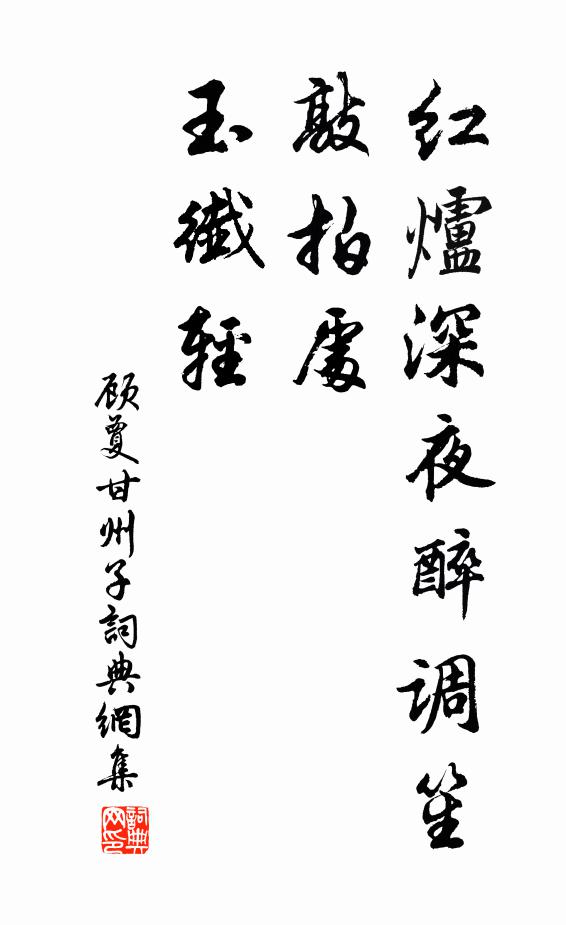 红爐深夜醉调笙
敲拍處
玉纖輕
顾敻甘州子詞典網集
詞典网印